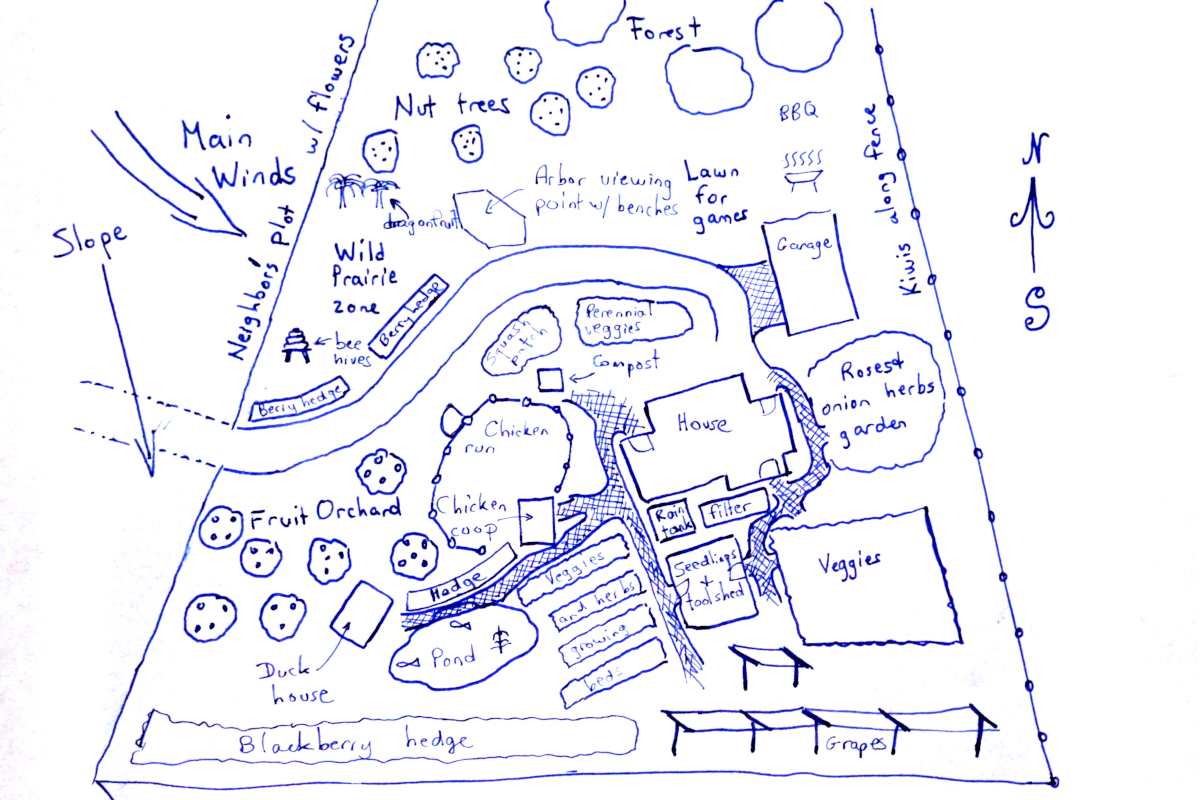 Forest
Nut trees
BBQ
Main
Winds
Neighbor's Plot w/ flowers
Kiwis along fence
N
S
Slope
dragonfruit
Arbor viewing
point w/ benches
Lawn
for
games
Garage
Wild
Prairie
zone
Berry hedge
bee
hives
Berry hedge
Squash
patch
Perennial
veggies
Compost
House
Roses &
onion herbs
garden
Chicken
run
Chicken
coop
Fruit Orchard
Rain
tank
filter
Hedge
Veggies
and herbs
growing
beds
Seedlings
+
toolshed
Veggies
Pond
Duck
house
Blackberry hedge
Grapes